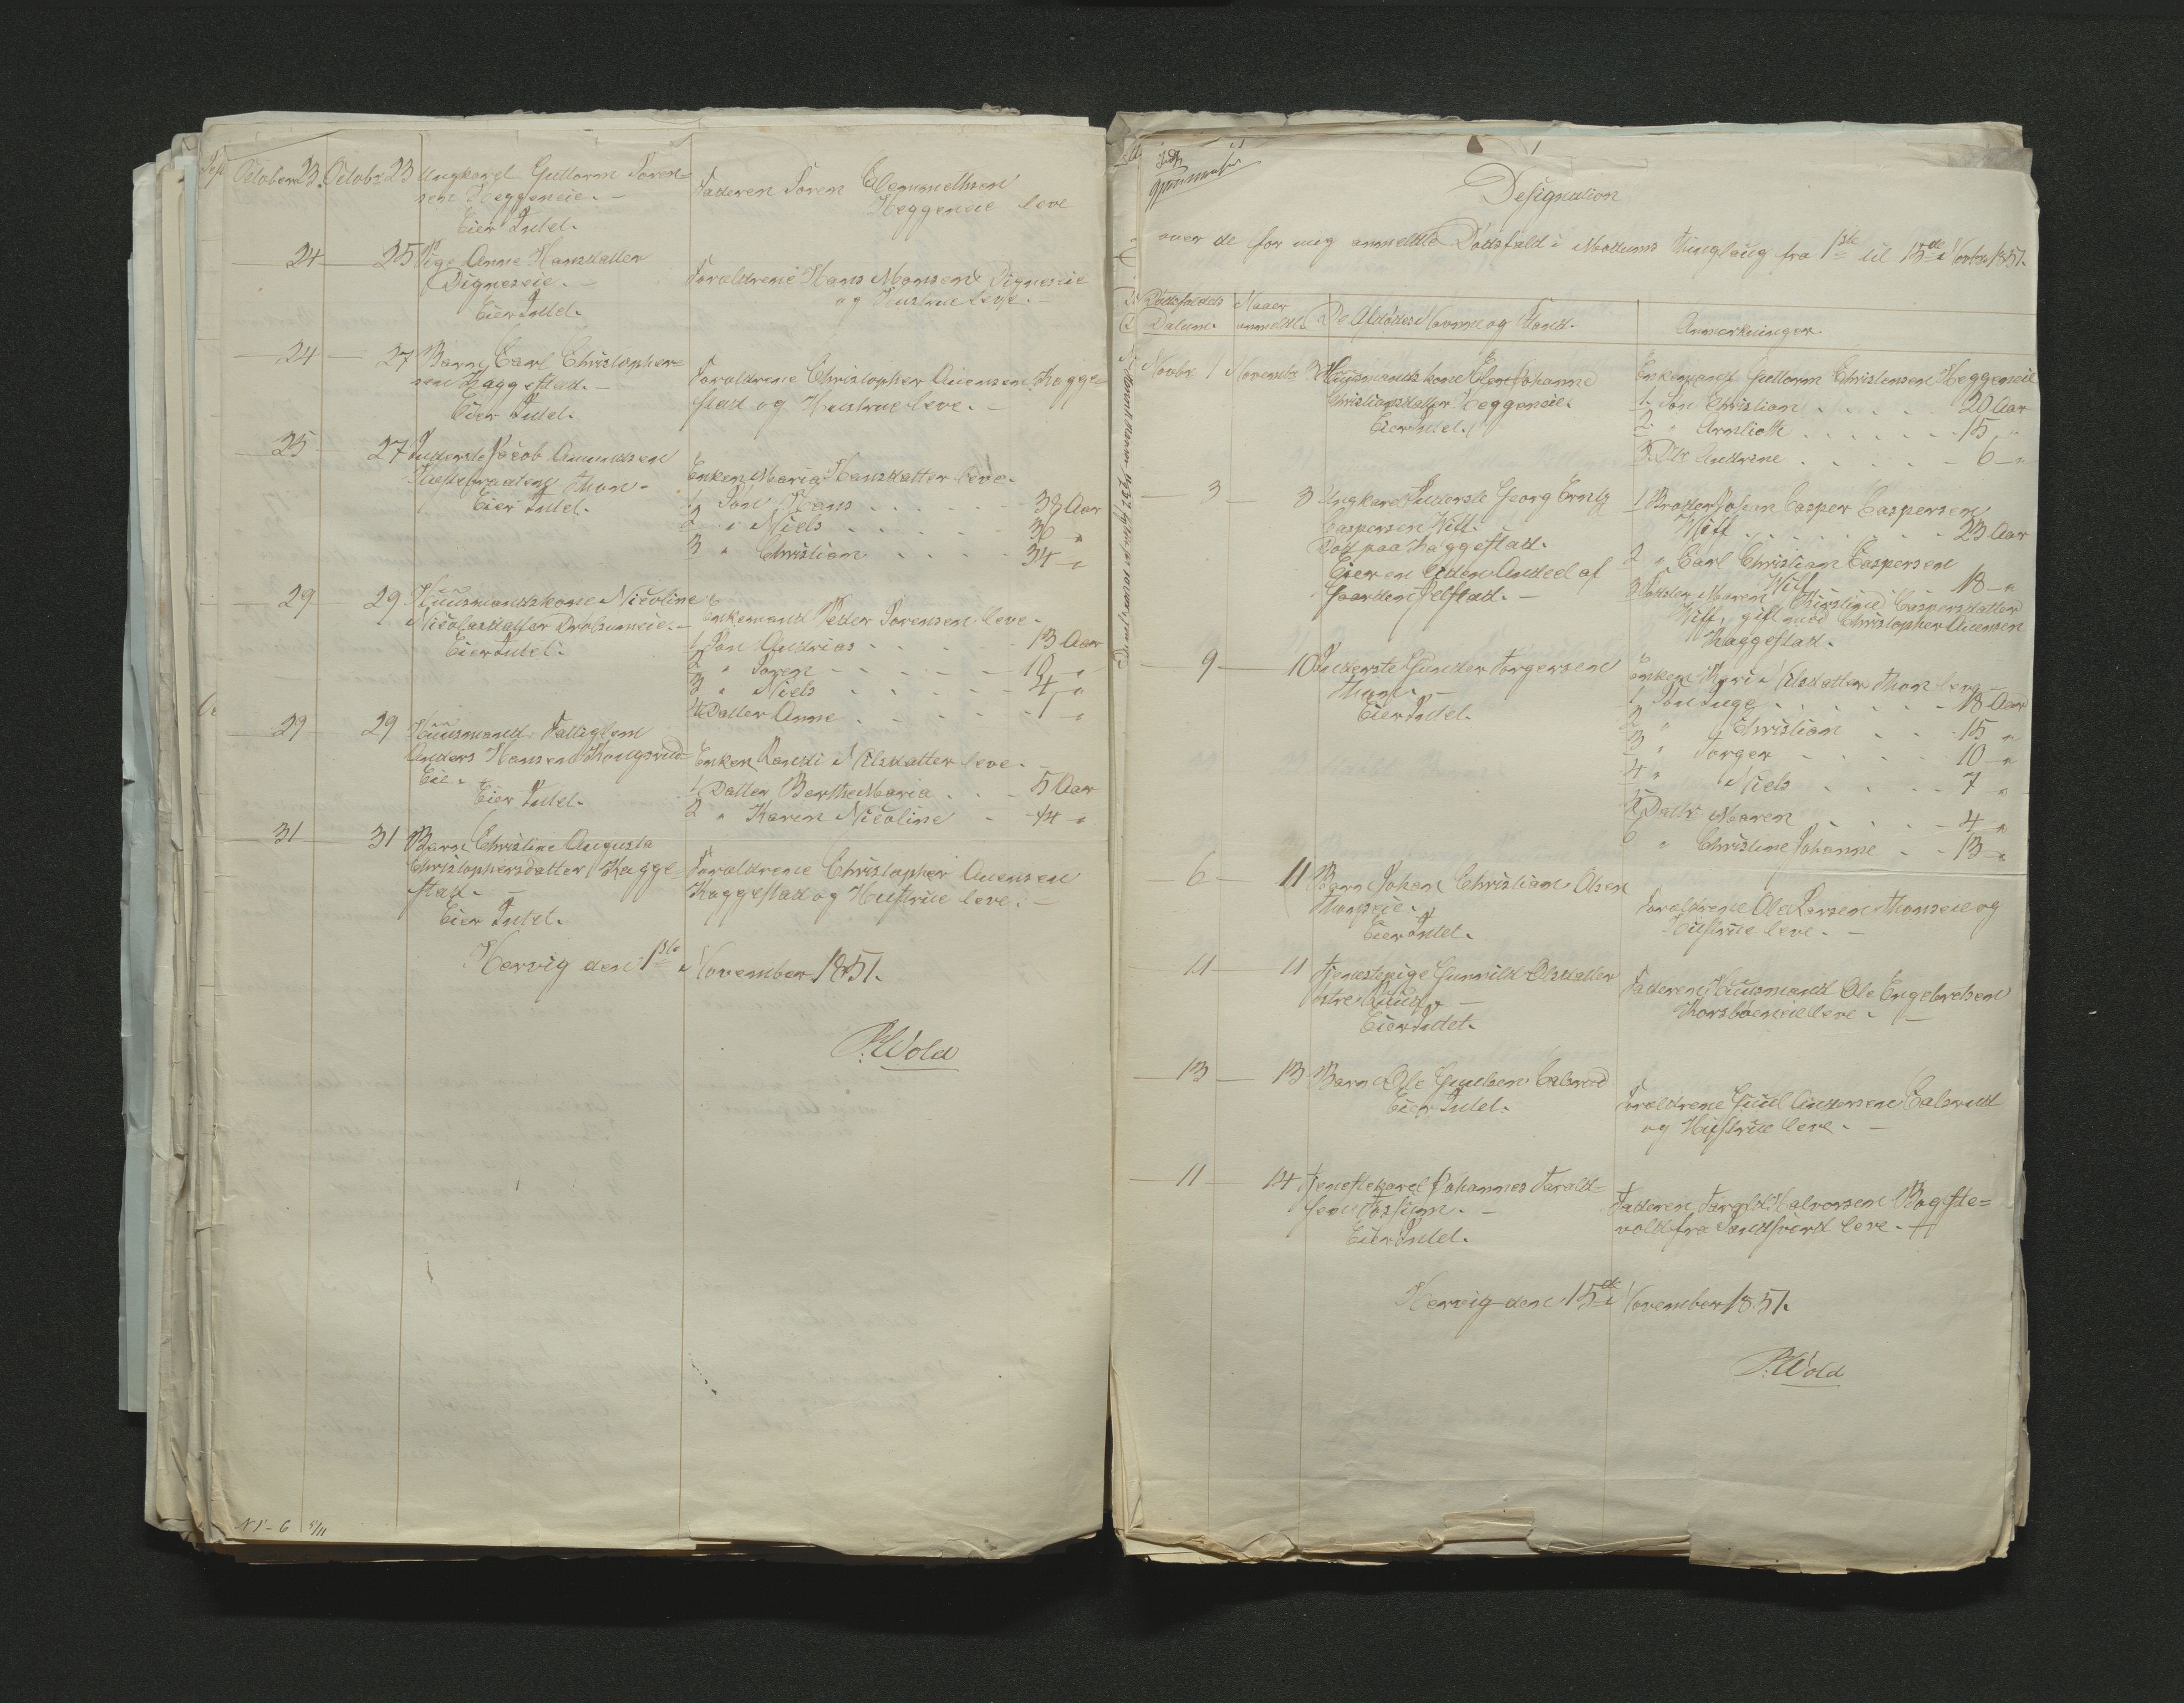 October 23. Octobr 23 Ungkarel Guttorm Søren=
sen Heggeneie. —
Eier Intet.
Faderen Søren Clemmethsen
Heggeneie leve
24 — 25 Pige Anne Hansdatter
Digneseie. —
Eier Intet.
Forældrene Hans Monsen Digneseie
og Hustrue leve. —
24 — 27 Barn Carl Christopher=
sen Haggestad. —
Eier Intet.
Forældrene Christopher Auensen Hagge=
stad og Hustrue leve. —
25 27 Inderste Jacob Amundsen
Thon.
Eier Intet.
Enken Maria Hansdatter leve.
1 Søn Hans . . . . . 38 Aar
2 " Niels . . . . . 36 "
3 " Christian . . . . 34 "
29 — 29 Huusmandskone Nicoline
Nicolasdatter —
Eier Intet.
Enkemand Peder Sørensen leve.
1 Søn Andrias . . . . . 13 Aar
2 " Søren . . . . . 10 "
3 " Niels . . . . . 4 "
4 Datter Anne . . . . . 1 "
29 — 29 Huusmand Fattiglem
Anders Hansen Kongsrud=
Eie.
Eier Intet.
Enken Randi Nilsdatter leve. —
1 Datter Berthe Maria . . . 5 Aar
2 " Karen Nicoline . 14 "
31 — 31 Barn Christine Augusta
Christophersdatter Hagge
stad. —
Eier Intet.
Forældrene Christopher Auensen
Haggestad og Hustrue leve. —
Hervig den 1ste November 1851.
P. Wold
N I - 6 5/11
Designation
over de for mig anmeldte Dødsfald i Modums Thinglaug fra 1ste til 15de Novbr 1851.
Dødsfaldets
Datum.
Naaer
anmeldt.
De Afdødes Navne og Stand.
Anmerkninger.
Novbr 1 November 3 Huusmandskone Elen Johanne
Christiansdatter Heggeneie.
Eier Intet.
Enkemand Guttorm Christensen Heggeneie
1. Søn Christian . . . . . 20 Aar
2. " Arnlioth . . . . . 15 "
3. Dttr Andrine . . . . . 6 "
3 — 3 Ungkarel Inderste Georg Ernst
Caspersen Wiff.
Død paa Haggestad.
Eier en liden Andeel af
Gaarden
1 Broder Johan Casper Caspersen
Wiff . . . . . 23 Aar
2 " Carl Christian Caspersen
Wiff 18 "
3 Søster Maren Kirstine Caspersdatter
Wiff, gift med Christopher Auensen
Haggestad.
9 — 10 Inderste Gunder Torgersen
Thon. —
Eier Intet.
Enken Kari Nilsdatter Thon leve
1 Søn Inge . . . . . 18 Aar
2 " Christian . . 15 "
3 " Torger . . . . 10 "
4 " Niels . . . . 7 "
5 Dattr Maren . . . . 4 "
6 " Christine Johanne . . 13 "
6 — 11 Barn Johan Christian Olsen
Thonseie.
Eier Intet.
Forældrene Ole Larsen Thonseie og
Hustrue leve. —
11 — 11 Tjenestepige Gunnild Olsdatter
østre Ruud —
Eier Intet.
Faderen Huusmand Ole Engebretsen
Korsbøeneie leve. —
13 — 13 Barn Ole Gulsen Calsrud
Eier Intet.
Forældrene Guul Andersen Calsrud
og Hustrue leve. —
11 — 14 Tjenestekarel Johannes Tarald=
sen Fossum. —
Eier Intet.
Faderen Tarald Halvorsen Bagste=
vold fra Sandsverd leve. —
Hervig den 15de November 1851.
P. Wold